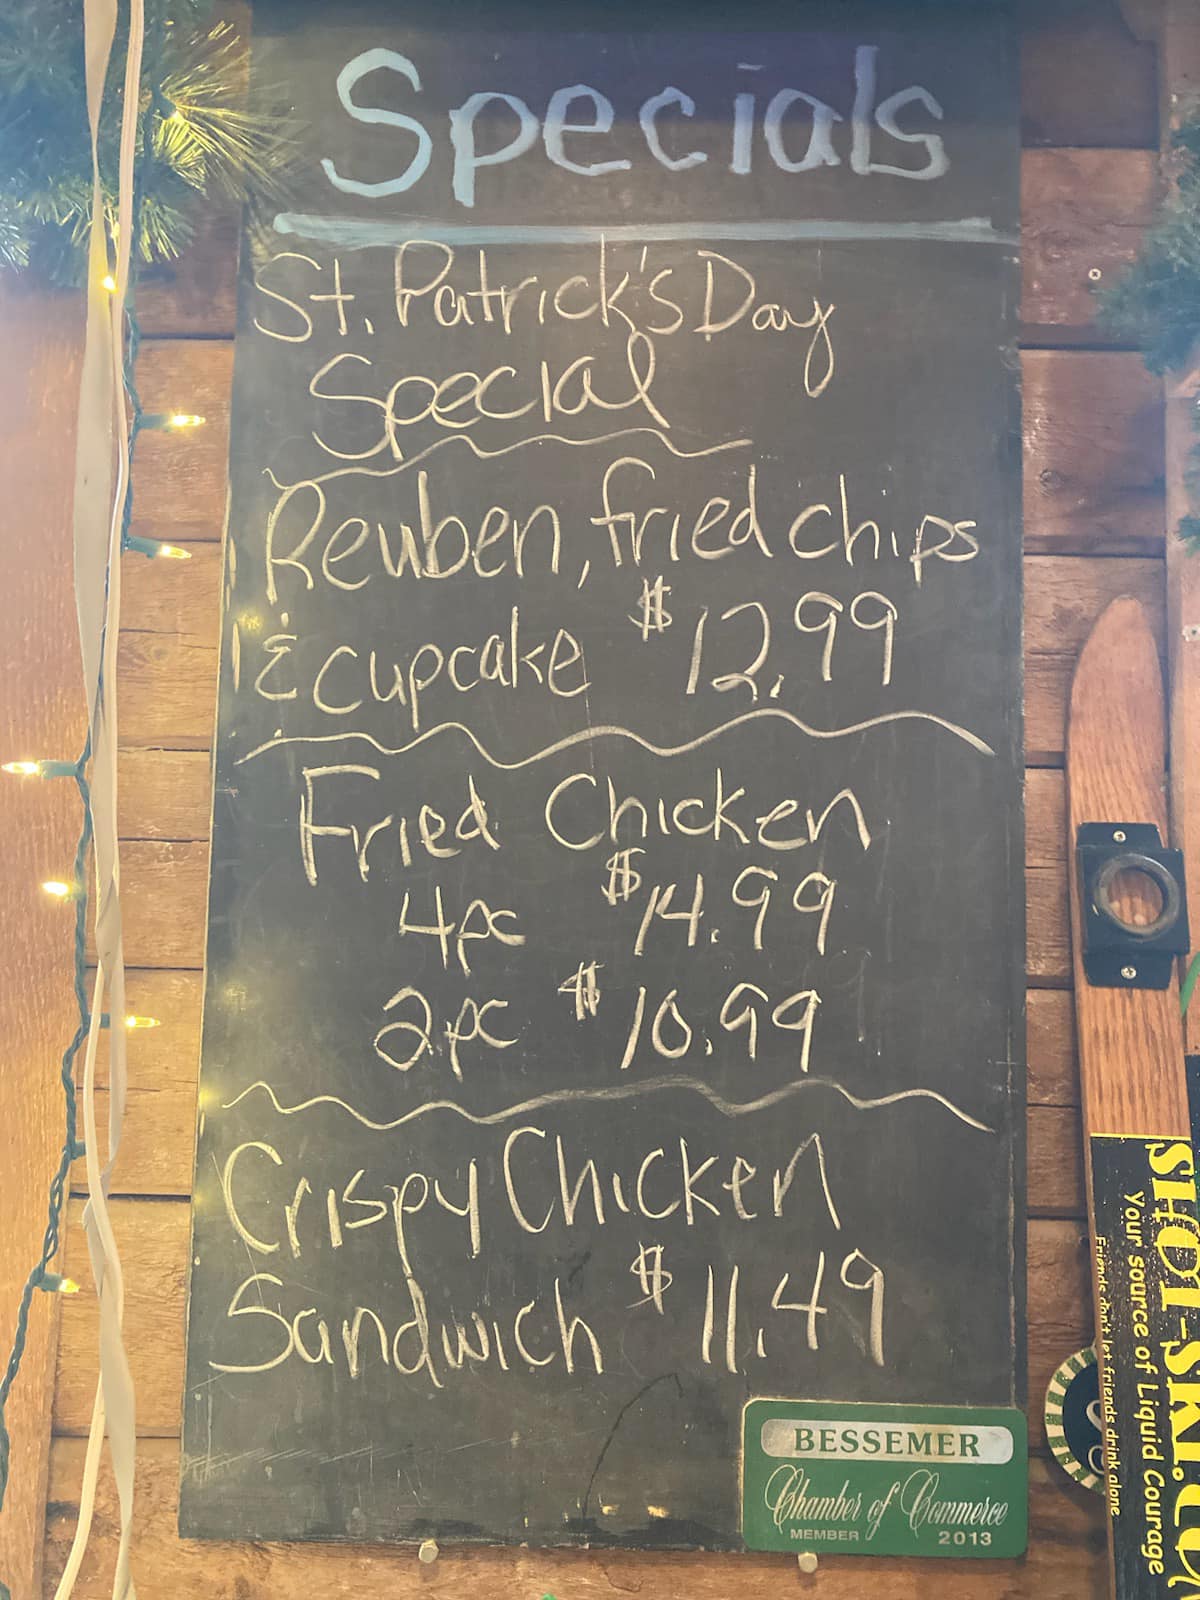 Specials
St. Patrick's Day
Special
Reuben, fried chips
& cupcake $12.99
Fried Chicken
4pc $14.99
2pc $10.99
Crispy Chicken
Sandwich $11.49
BESSEMER
Chamber of Commerce
MEMBER 2013
SHOT-SKI.
Your source of Liquid Courage
Friends don't let friends drink alone